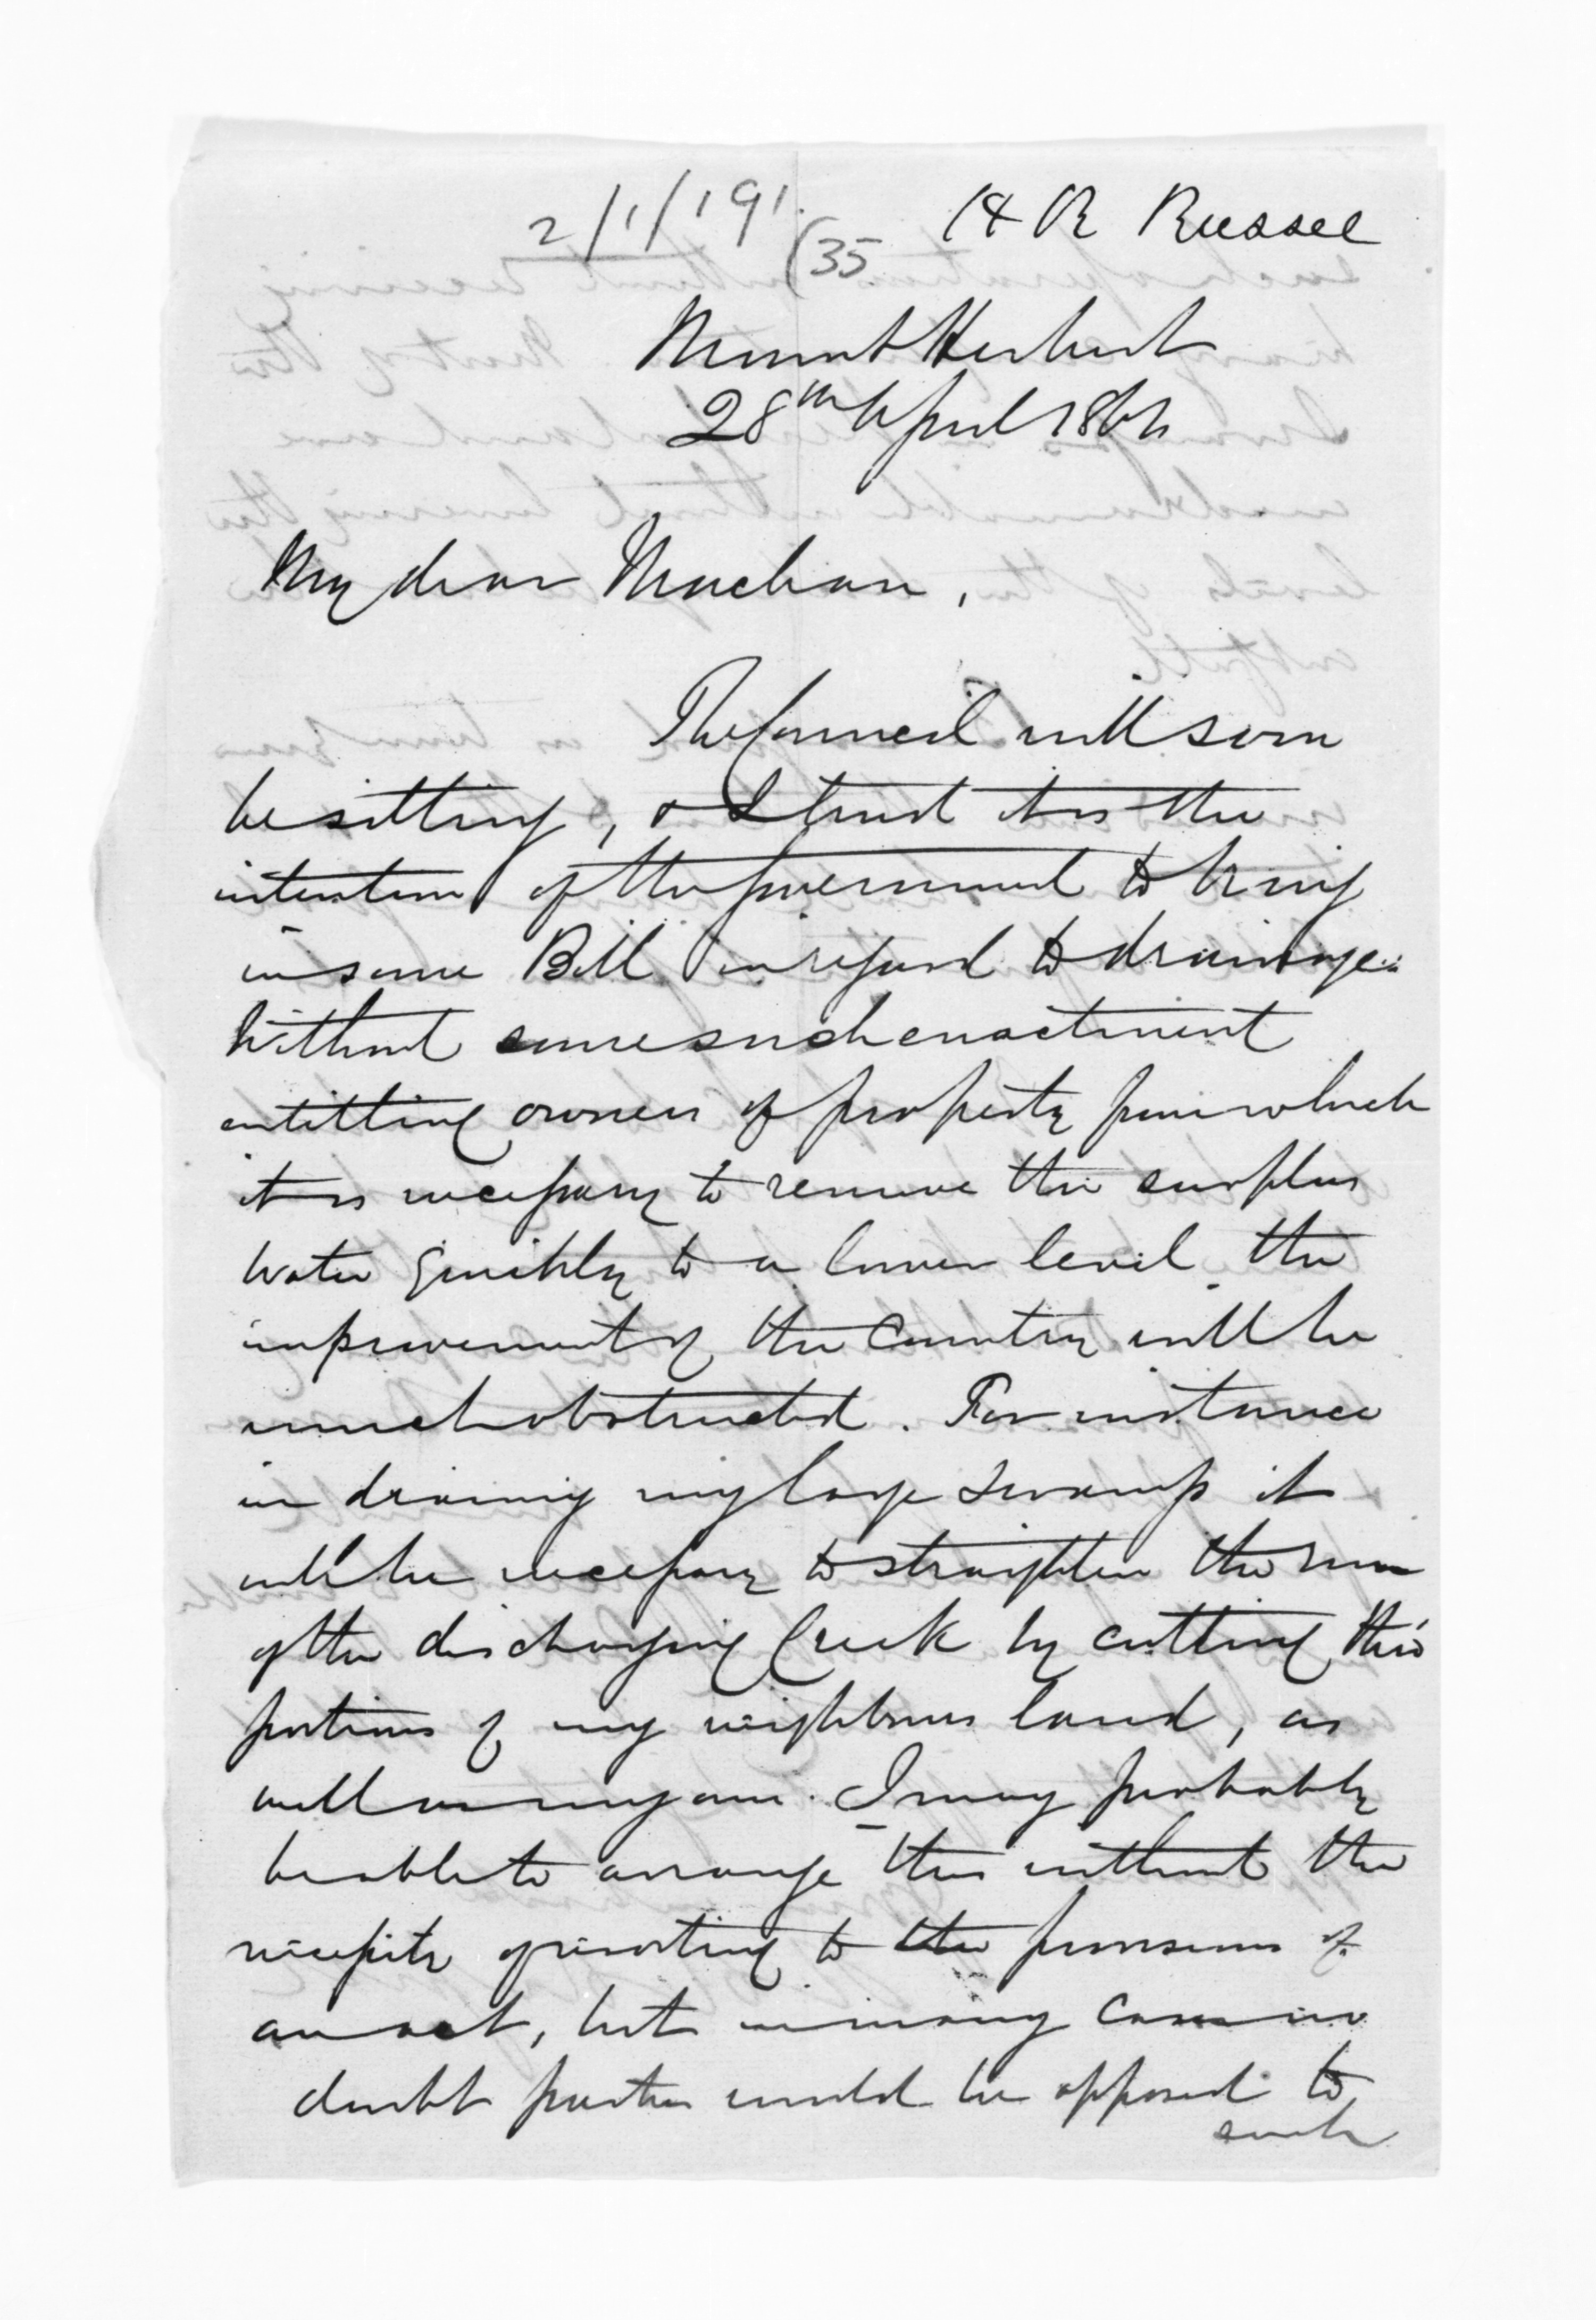 2/1/191
(35
H R Russel
Mount Herbert
28th April 1866
My dear Maclean,
The Council will soon
be sitting, & I trust it is the
intention of the Government to bring
in some Bill in regard to drainage.
Without some such enactment
entitling owners of property from which
it is necessary to remove the surplus
water quickly to a lower level the
improvement of the Country will be
much obstructed. For instance
in draining my large Swamp it
will be necessary to straighten the run
of the discharging Creek by cutting thro
portions of my neighbours land, as
well as my own. I may probably
be able to arrange this without the
necessity of resorting to the provisions of
an act, but in many cases no
doubt parties would be opposed to
such